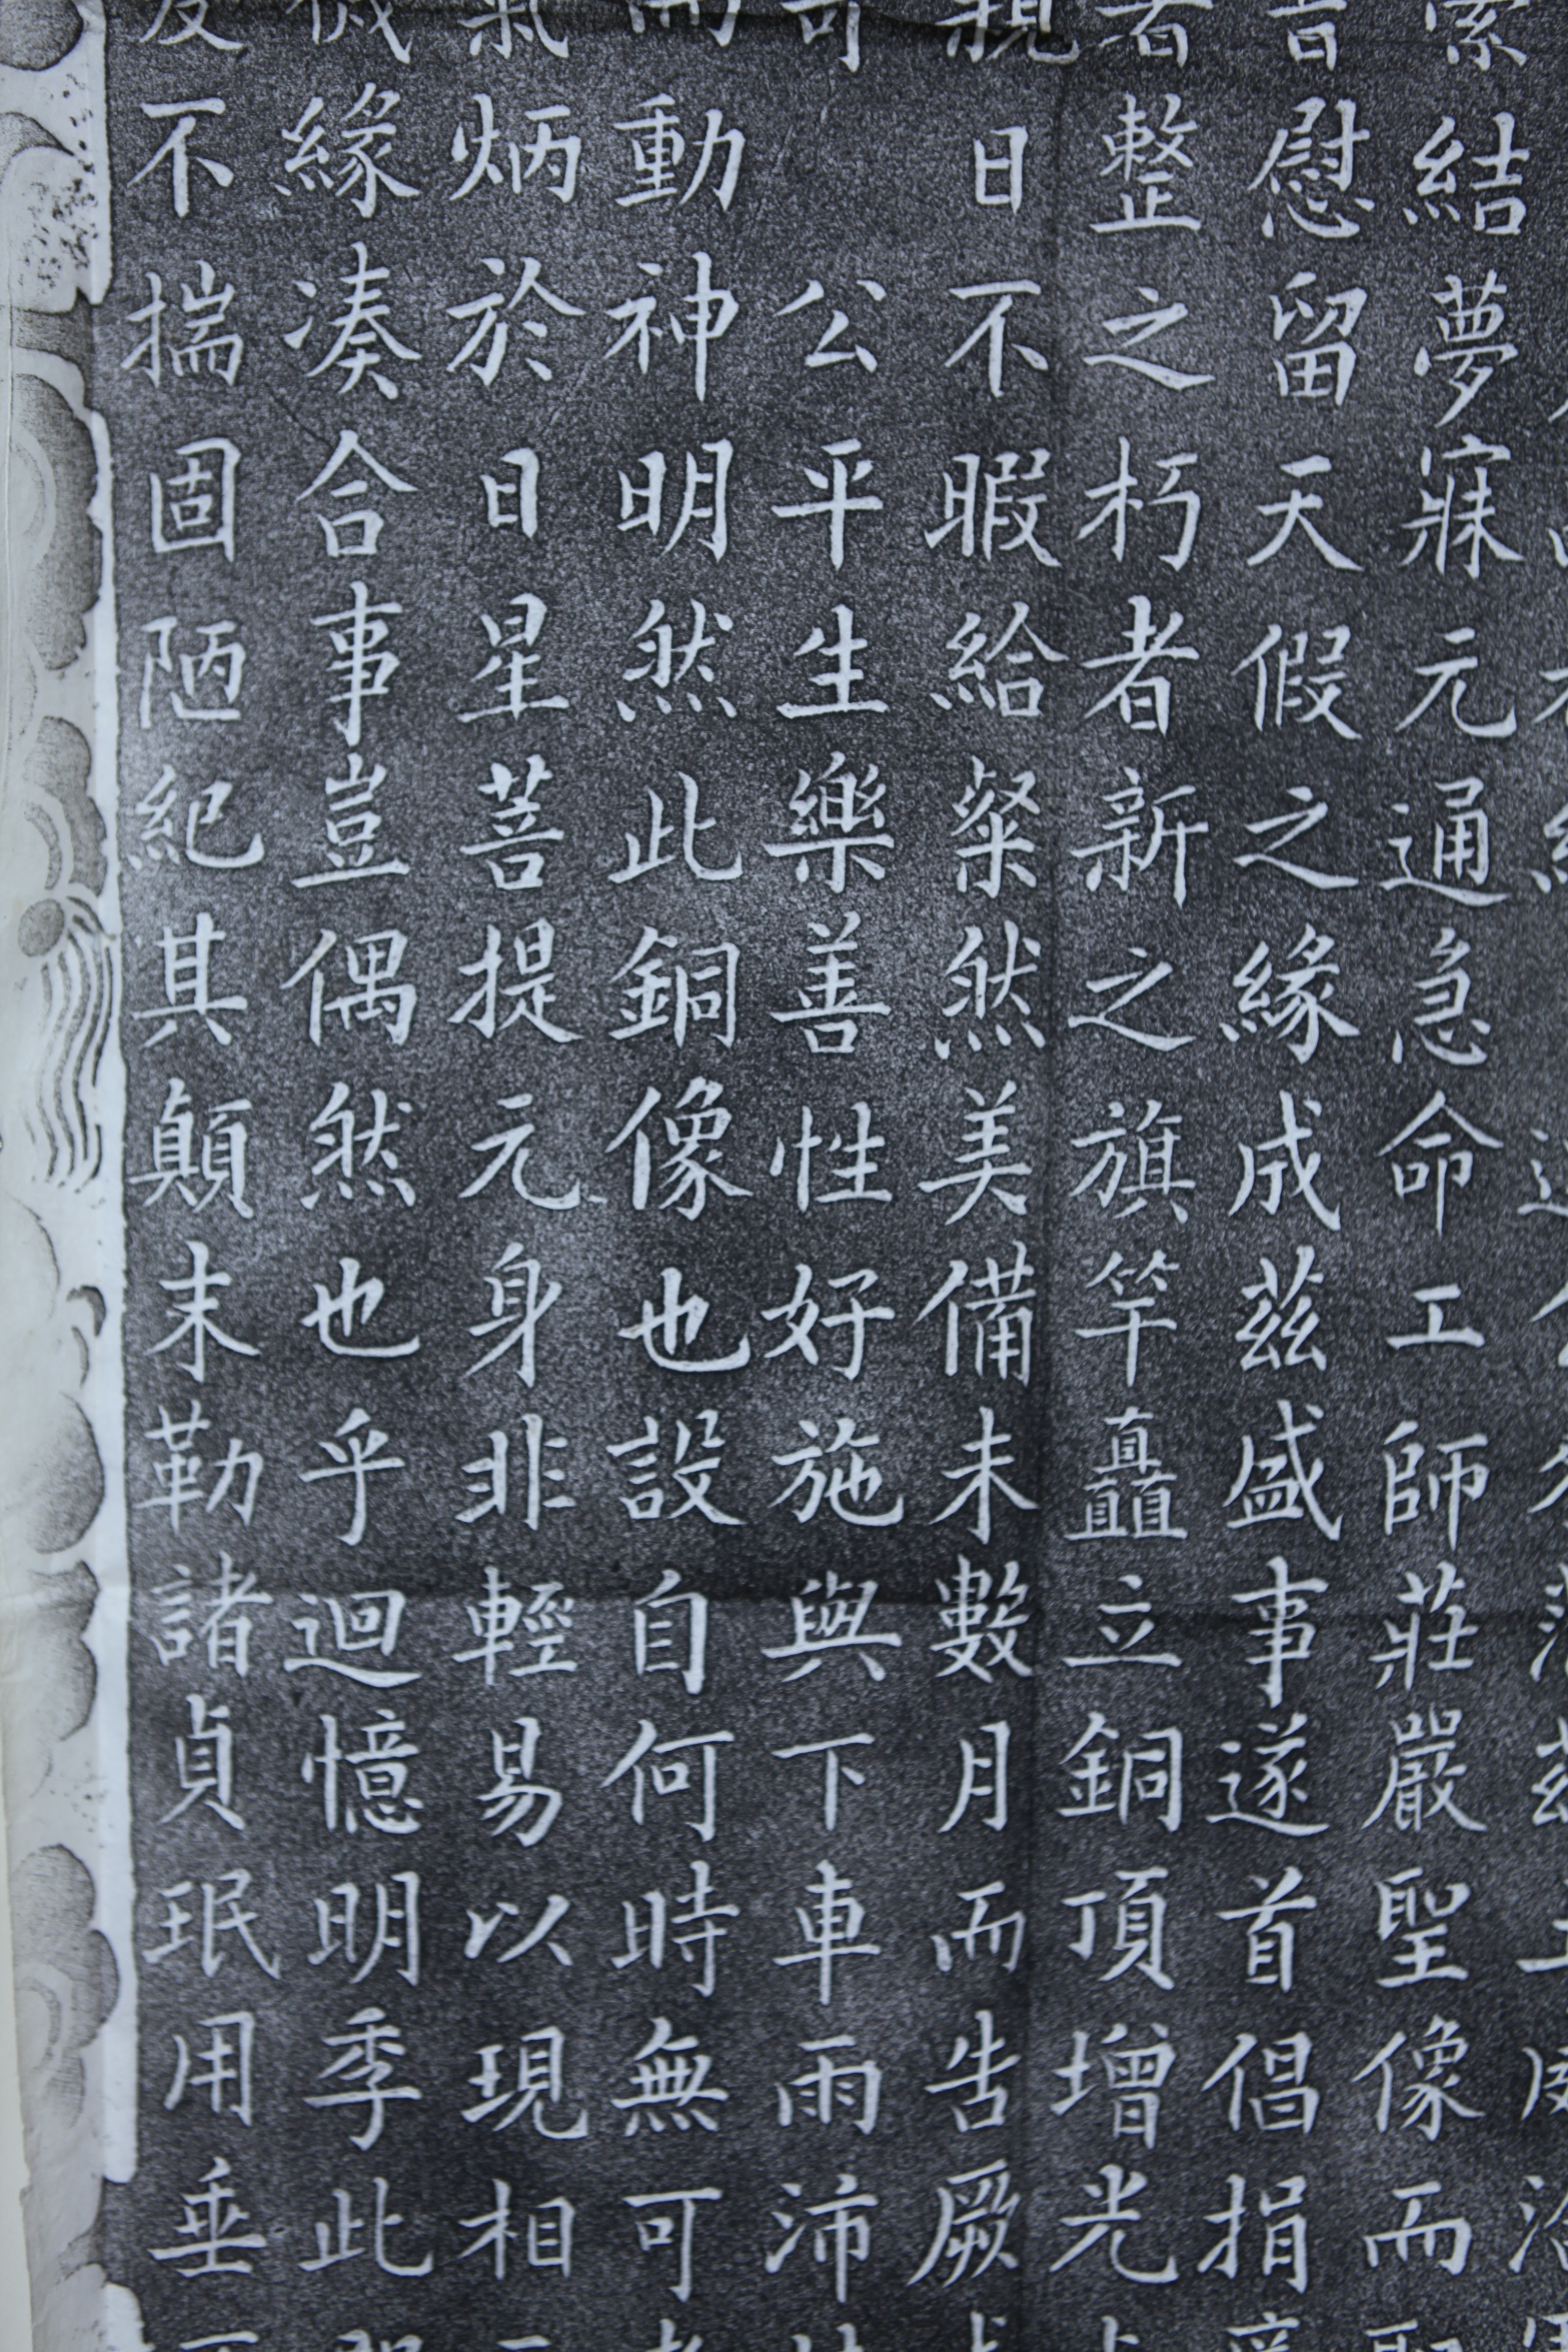 結夢寐元通急命工師莊嚴聖像而
慰留天假之緣成茲盛事遂首倡捐
者整之朽者新之旗竿矗立銅頂增光
親日不暇給粲然美備未數月而告厥
可公平生樂善性好施與下車雨沛
而動神明然此銅像也設自何時無可
氣炳於日星菩提元身非輕易以現相
機緣湊合事豈偶然也乎迴憶明季此
爰不揣固陋紀其顛末勒諸貞珉用垂